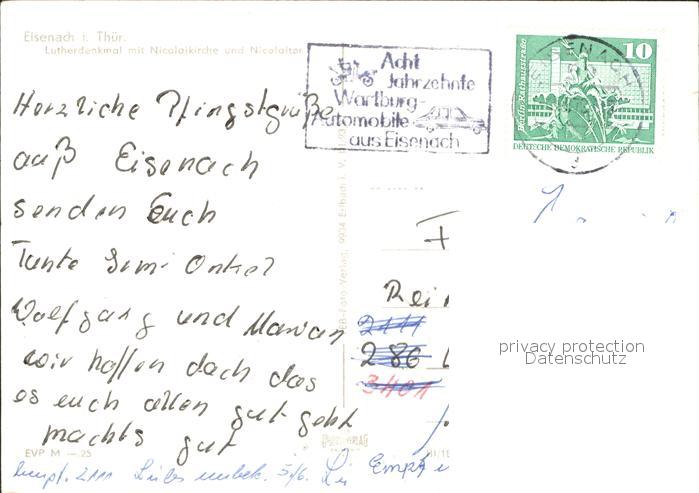 Eisenach i. Thür.
Lutherdenkmal mit Nicolaikirche und Nicolaitor
Acht
Jahrzehnte
Wartburg-
Automobile
aus Eisenach
10
Berlin, Rathausstraße
DEUTSCHE DEMOKRATISCHE REPUBLIK
Herzliche Pfingstgrüße
auß Eisenach
senden Euch
Tante Onkel
Wolfgang und Marian
wir hoffen doch das
es euch allen gut geht
machts gut
F
Rei
2111
286
3401
privacy protection
Datenschutz
EVP M —.25
2111 unbek. 5/6. Empf